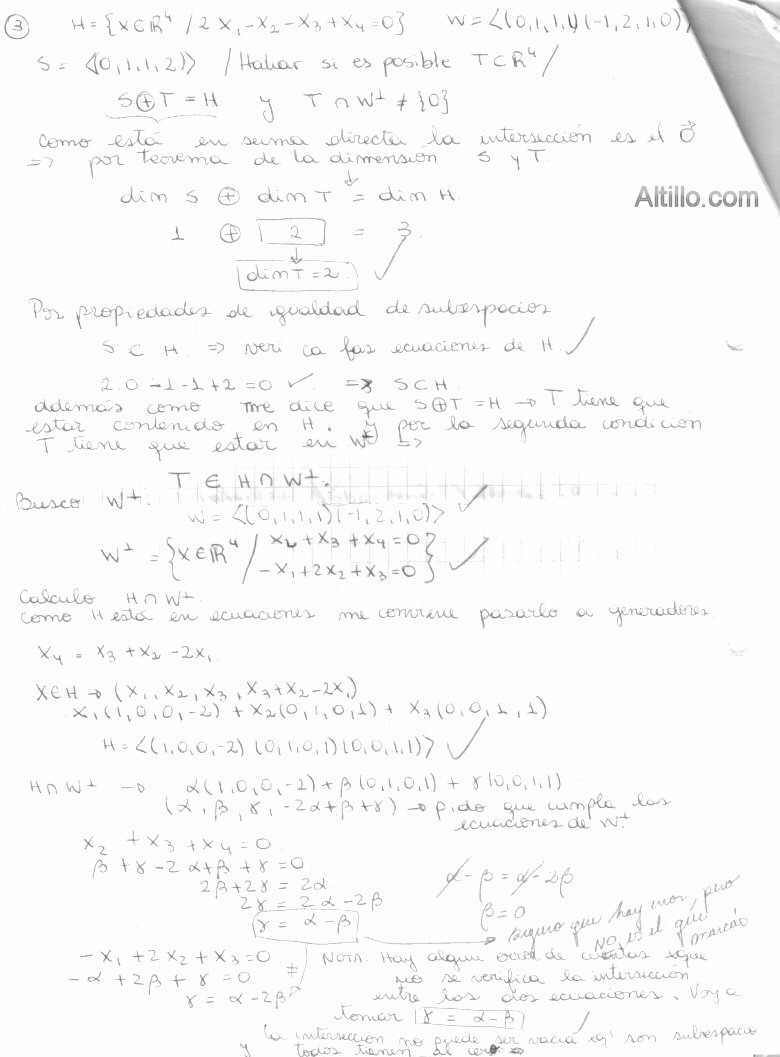 3 H = {x∈ℝ⁴ / 2x₁-x₂-x₃+x₄=0} W = <(0,1,1,1)(-1,2,1,0)>
S = <(0,1,1,2)> / Hallar si es posible T⊂ℝ⁴/
S⊕T = H y T∩W⊥ ≠ {0}
como está en suma directa la intersección es el 0⃗
=> por teorema de la dimensión S y T
dim S ⊕ dim T = dim H.
Altillo.com
1 ⊕ 2 = 3.
dim T = 2.
Por propiedades de igualdad de subespacios
S ⊂ H. => veri ca fas ecuaciones de H
2.0 -1-1+2=0 ✓. => S⊂H.
además como me dice que S⊕T=H → T tiene que
estar contenido en H. y por la segunda condición
T tiene que estar en W⊥ =>
T ∈ H∩W⊥.
Busco W⊥.
W = <(0,1,1,1)(-1,2,1,0)>
W⊥ = {x∈ℝ⁴ / x₂+x₃+x₄=0
-x₁+2x₂+x₃=0}
Calculo H∩W⊥.
como H está en ecuaciones me conviene pasarlo a generadores.
x₄ = x₃+x₂-2x₁
x∈H → (x₁,x₂,x₃,x₃+x₂-2x₁)
x₁(1,0,0,-2) + x₂(0,1,0,1) + x₃(0,0,1,1)
H = <(1,0,0,-2)(0,1,0,1)(0,0,1,1)>
H∩W⊥ → α(1,0,0,-2)+β(0,1,0,1)+γ(0,0,1,1)
(α, β, γ, -2α+β+γ) → pido que cumpla las
ecuaciones de W⊥.
x₂+x₃+x₄=0.
β+γ-2α+β+γ=0
2β+2γ = 2α
2γ = 2α-2β
γ = α-β
α-β = α-2β
β=0
seguro que hay error, pero
NO, es el que
marcás
-x₁+2x₂+x₃=0
-α+2β+γ=0.
γ = α-2β
≠
NOTA: Hay algún error de cuentas que
no se verifica la intersección
entre las dos ecuaciones. Voy a
tomar γ = α-β
la intersección no puede ser vacía son subespacio
y todos tienen al cero